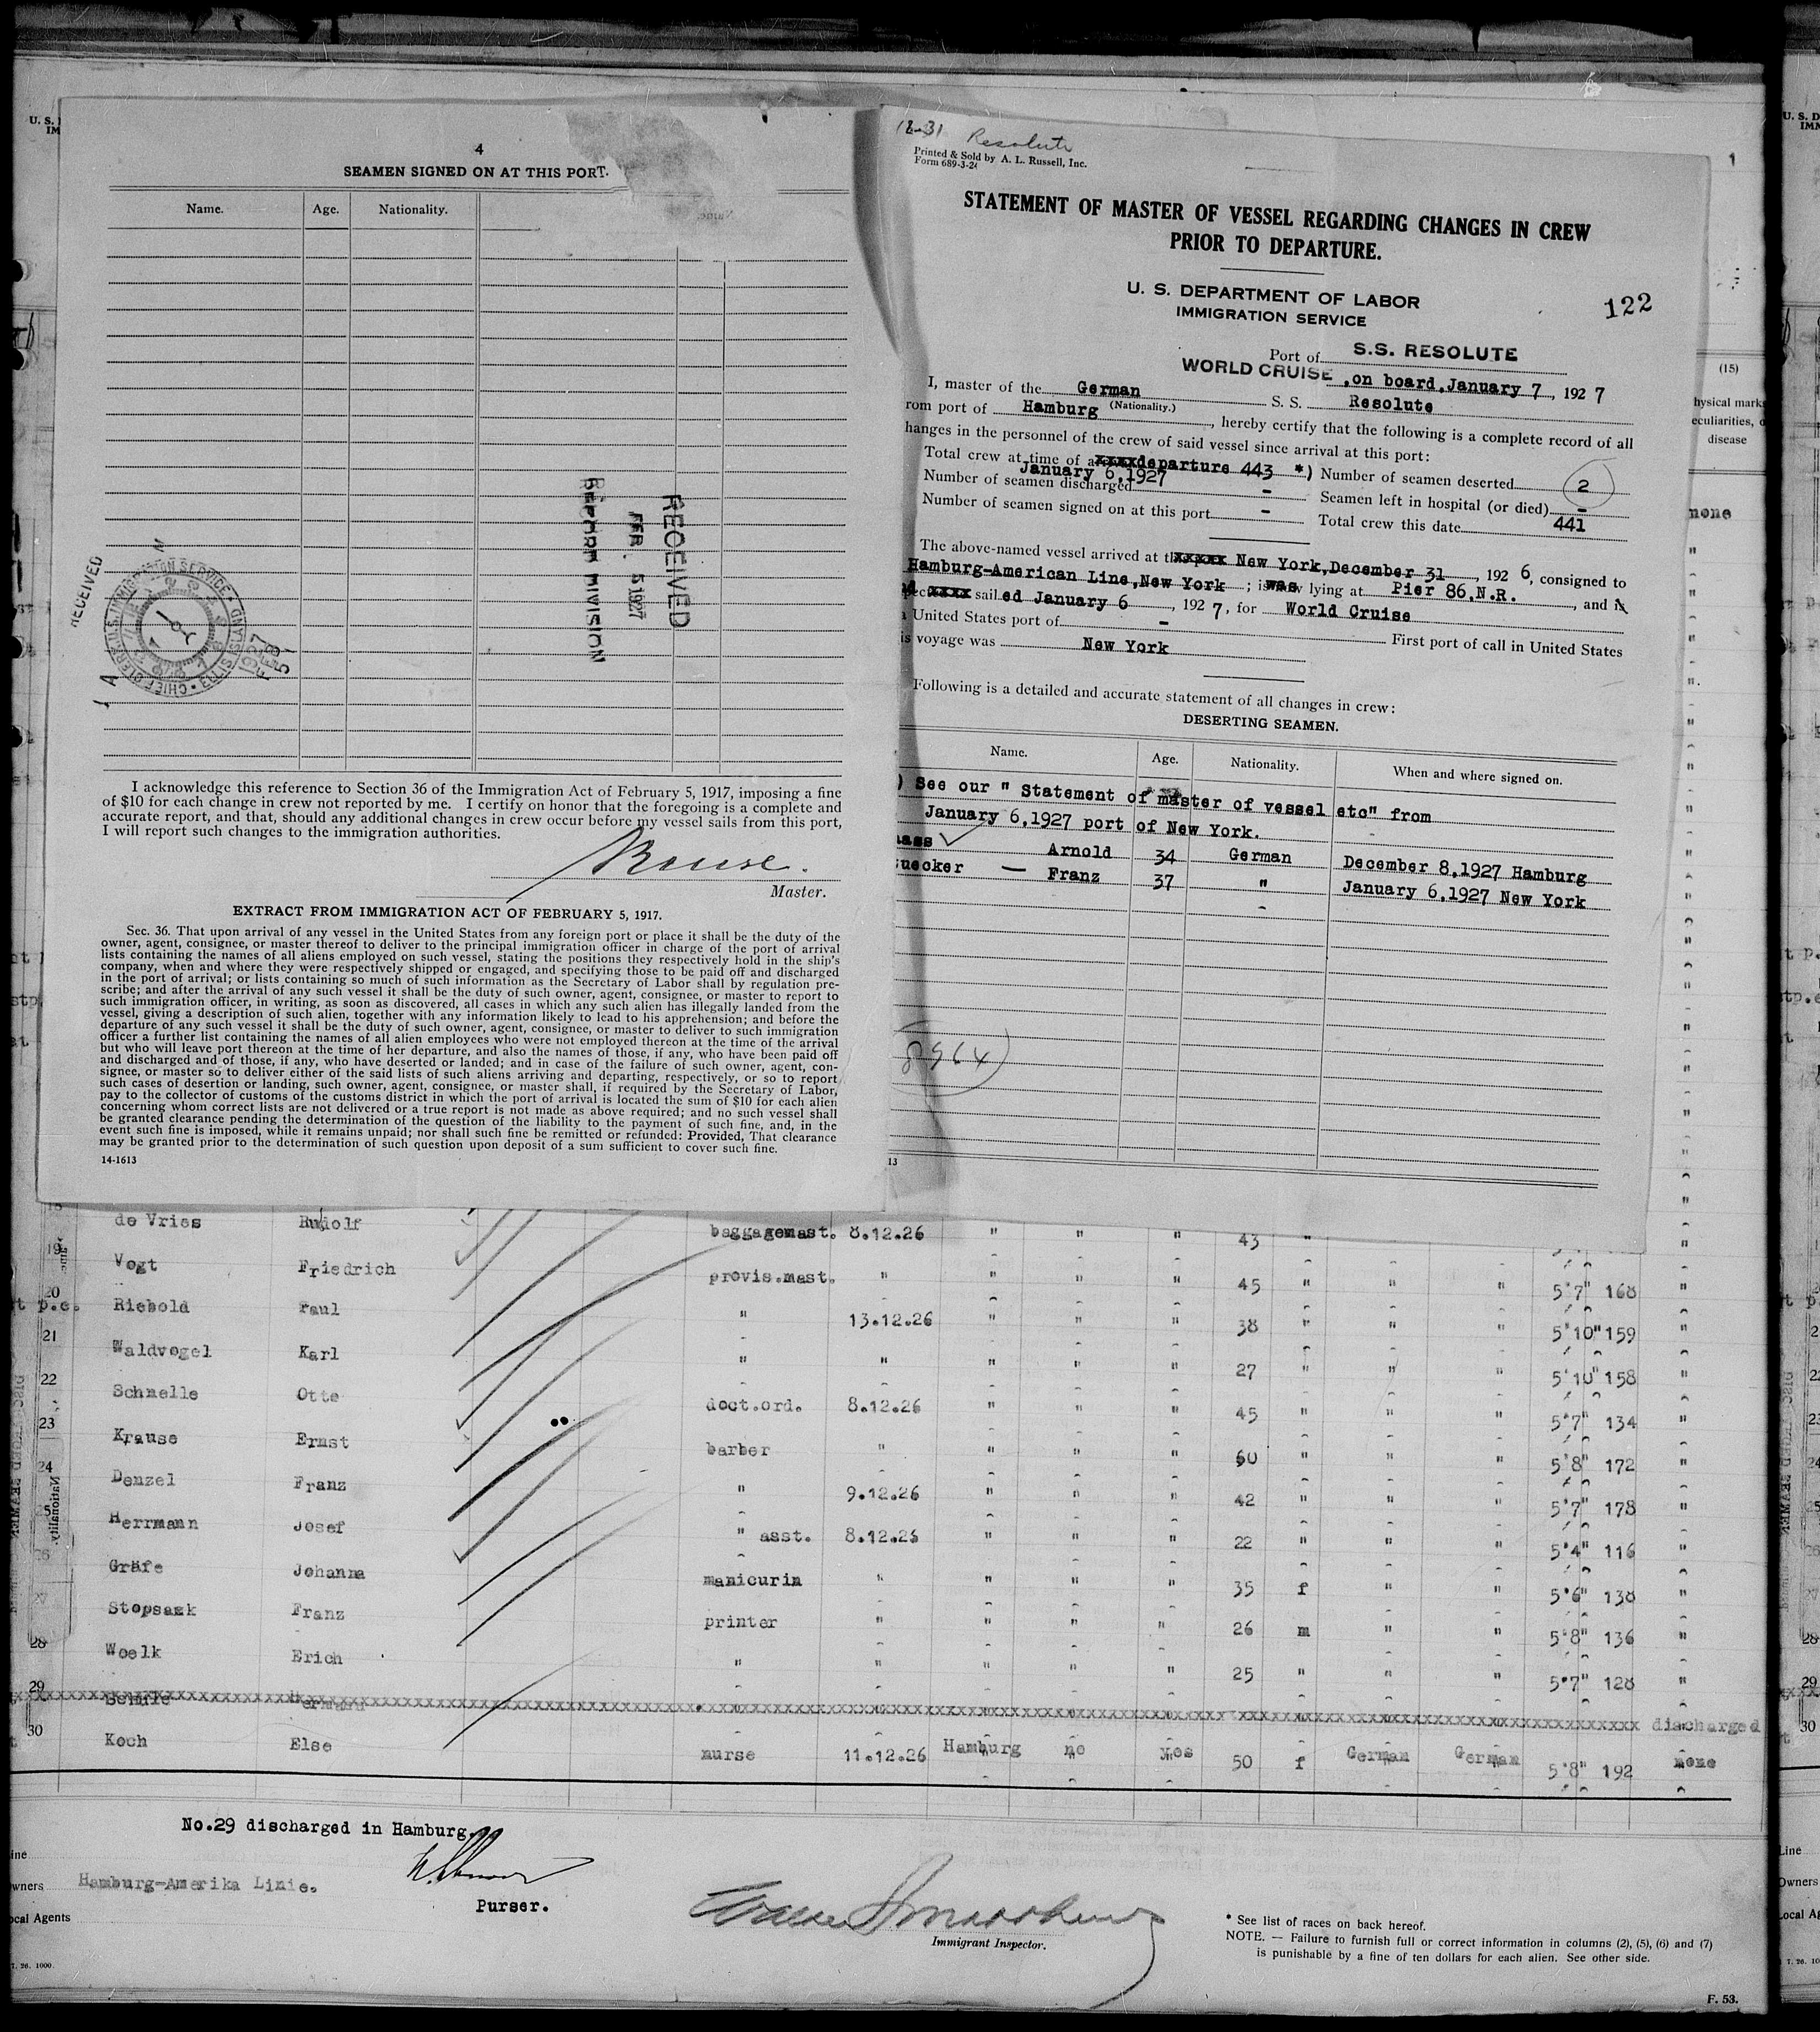 4
SEAMEN SIGNED ON AT THIS PORT.
Name. Age. Nationality.
RECEIVED
FEB. 5 1927
RECORD DIVISION
RECEIVED
U.S. IMMIGRATION SERVICE • ELLIS ISLAND • CHIEF CLERK
1927
FEB
5
I acknowledge this reference to Section 36 of the Immigration Act of February 5, 1917, imposing a fine
of $10 for each change in crew not reported by me. I certify on honor that the foregoing is a complete and
accurate report, and that, should any additional changes in crew occur before my vessel sails from this port,
I will report such changes to the immigration authorities.
Kruse.
Master.
EXTRACT FROM IMMIGRATION ACT OF FEBRUARY 5, 1917.
Sec. 36. That upon arrival of any vessel in the United States from any foreign port or place it shall be the duty of the
owner, agent, consignee, or master thereof to deliver to the principal immigration officer in charge of the port of arrival
lists containing the names of all aliens employed on such vessel, stating the positions they respectively hold in the ship's
company, when and where they were respectively shipped or engaged, and specifying those to be paid off and discharged
in the port of arrival; or lists containing so much of such information as the Secretary of Labor shall by regulation pre-
scribe; and after the arrival of any such vessel it shall be the duty of such owner, agent, consignee, or master to report to
such immigration officer, in writing, as soon as discovered, all cases in which any such alien has illegally landed from the
vessel, giving a description of such alien, together with any information likely to lead to his apprehension; and before the
departure of any such vessel it shall be the duty of such owner, agent, consignee, or master to deliver to such immigration
officer a further list containing the names of all alien employees who were not employed thereon at the time of the arrival
but who will leave port thereon at the time of her departure, and also the names of those, if any, who have been paid off
and discharged and of those, if any, who have deserted or landed; and in case of the failure of such owner, agent, con-
signee, or master so to deliver either of the said lists of such aliens arriving and departing, respectively, or so to report
such cases of desertion or landing, such owner, agent, consignee, or master shall, if required by the Secretary of Labor,
pay to the collector of customs of the customs district in which the port of arrival is located the sum of $10 for each alien
concerning whom correct lists are not delivered or a true report is not made as above required; and no such vessel shall
be granted clearance pending the determination of the question of the liability to the payment of such fine, and, in the
event such fine is imposed, while it remains unpaid; nor shall such fine be remitted or refunded: Provided, That clearance
may be granted prior to the determination of such question upon deposit of a sum sufficient to cover such fine.
14-1613
12-31 Resolute
Printed & Sold by A. L. Russell, Inc.
Form 689-3-24
STATEMENT OF MASTER OF VESSEL REGARDING CHANGES IN CREW
PRIOR TO DEPARTURE.
U. S. DEPARTMENT OF LABOR
IMMIGRATION SERVICE
122
Port of S.S. RESOLUTE
WORLD CRUISE , on board, January 7, 1927
I, master of the German S. S. Resolute
(Nationality.)
rom port of Hamburg, hereby certify that the following is a complete record of all
hanges in the personnel of the crew of said vessel since arrival at this port:
Total crew at time of axxxxdeparture 443 *) Number of seamen deserted 2
January 6,1927
Number of seamen discharged - Seamen left in hospital (or died) -
Number of seamen signed on at this port - Total crew this date 441
The above-named vessel arrived at thxxxxx New York, December 31, 1926, consigned to
Hamburg-American Line, New York; is was lying at Pier 86, N.R., and is
xxxx sailed January 6, 1927, for World Cruise
United States port of - First port of call in United States
is voyage was New York
Following is a detailed and accurate statement of all changes in crew:
DESERTING SEAMEN.
Name. Age. Nationality. When and where signed on.
) See our " Statement of master of vessel etc" from
January 6,1927 port of New York.
aass Arnold 34 German December 8,1927 Hamburg
uecker — Franz 37 " January 6,1927 New York
8964)
13
(15)
hysical marks
eculiarities, o
disease
none
de Vries Rudolf baggagemast. 8.12.26 " " " 43 "
19 Vogt Friedrich provis.mast. " " " " 45 " " " 5'7" 168 "
20 Riebold Paul " 13.12.26 " " " 38 " " " 5'10" 159 "
21 Waldvogel Karl " " " " " 27 " " " 5'10" 158 "
22 Schnelle Otto doct.ord. 8.12.26 " " " 45 " " " 5'7" 134 "
23 Krause Ernst barber " " " " 60 " " " 5'8" 172 "
24 Denzel Franz " 9.12.26 " " " 42 " " " 5'7" 178 "
25 Herrmann Josef " asst. 8.12.26 " " " 22 " " " 5'4" 116 "
26 Gräfe Johanna manicurin " " " " 35 f " " 5'6" 138 "
27 Stopsack Franz printer " " " " 26 m " " 5'8" 136 "
28 Woelk Erich " " " " " 25 " " " 5'7" 128 "
29 Hermann discharged
30 Koch Else nurse 11.12.26 Hamburg no yes 50 f German German 5'8" 192 none
No.29 discharged in Hamburg.
Purser.
wners Hamburg-Amerika Linie.
ocal Agents
Immigrant Inspector.
* See list of races on back hereof.
NOTE. — Failure to furnish full or correct information in columns (2), (5), (6) and (7)
is punishable by a fine of ten dollars for each alien. See other side.
7. 26. 1000.
F. 53.
Line
Owners